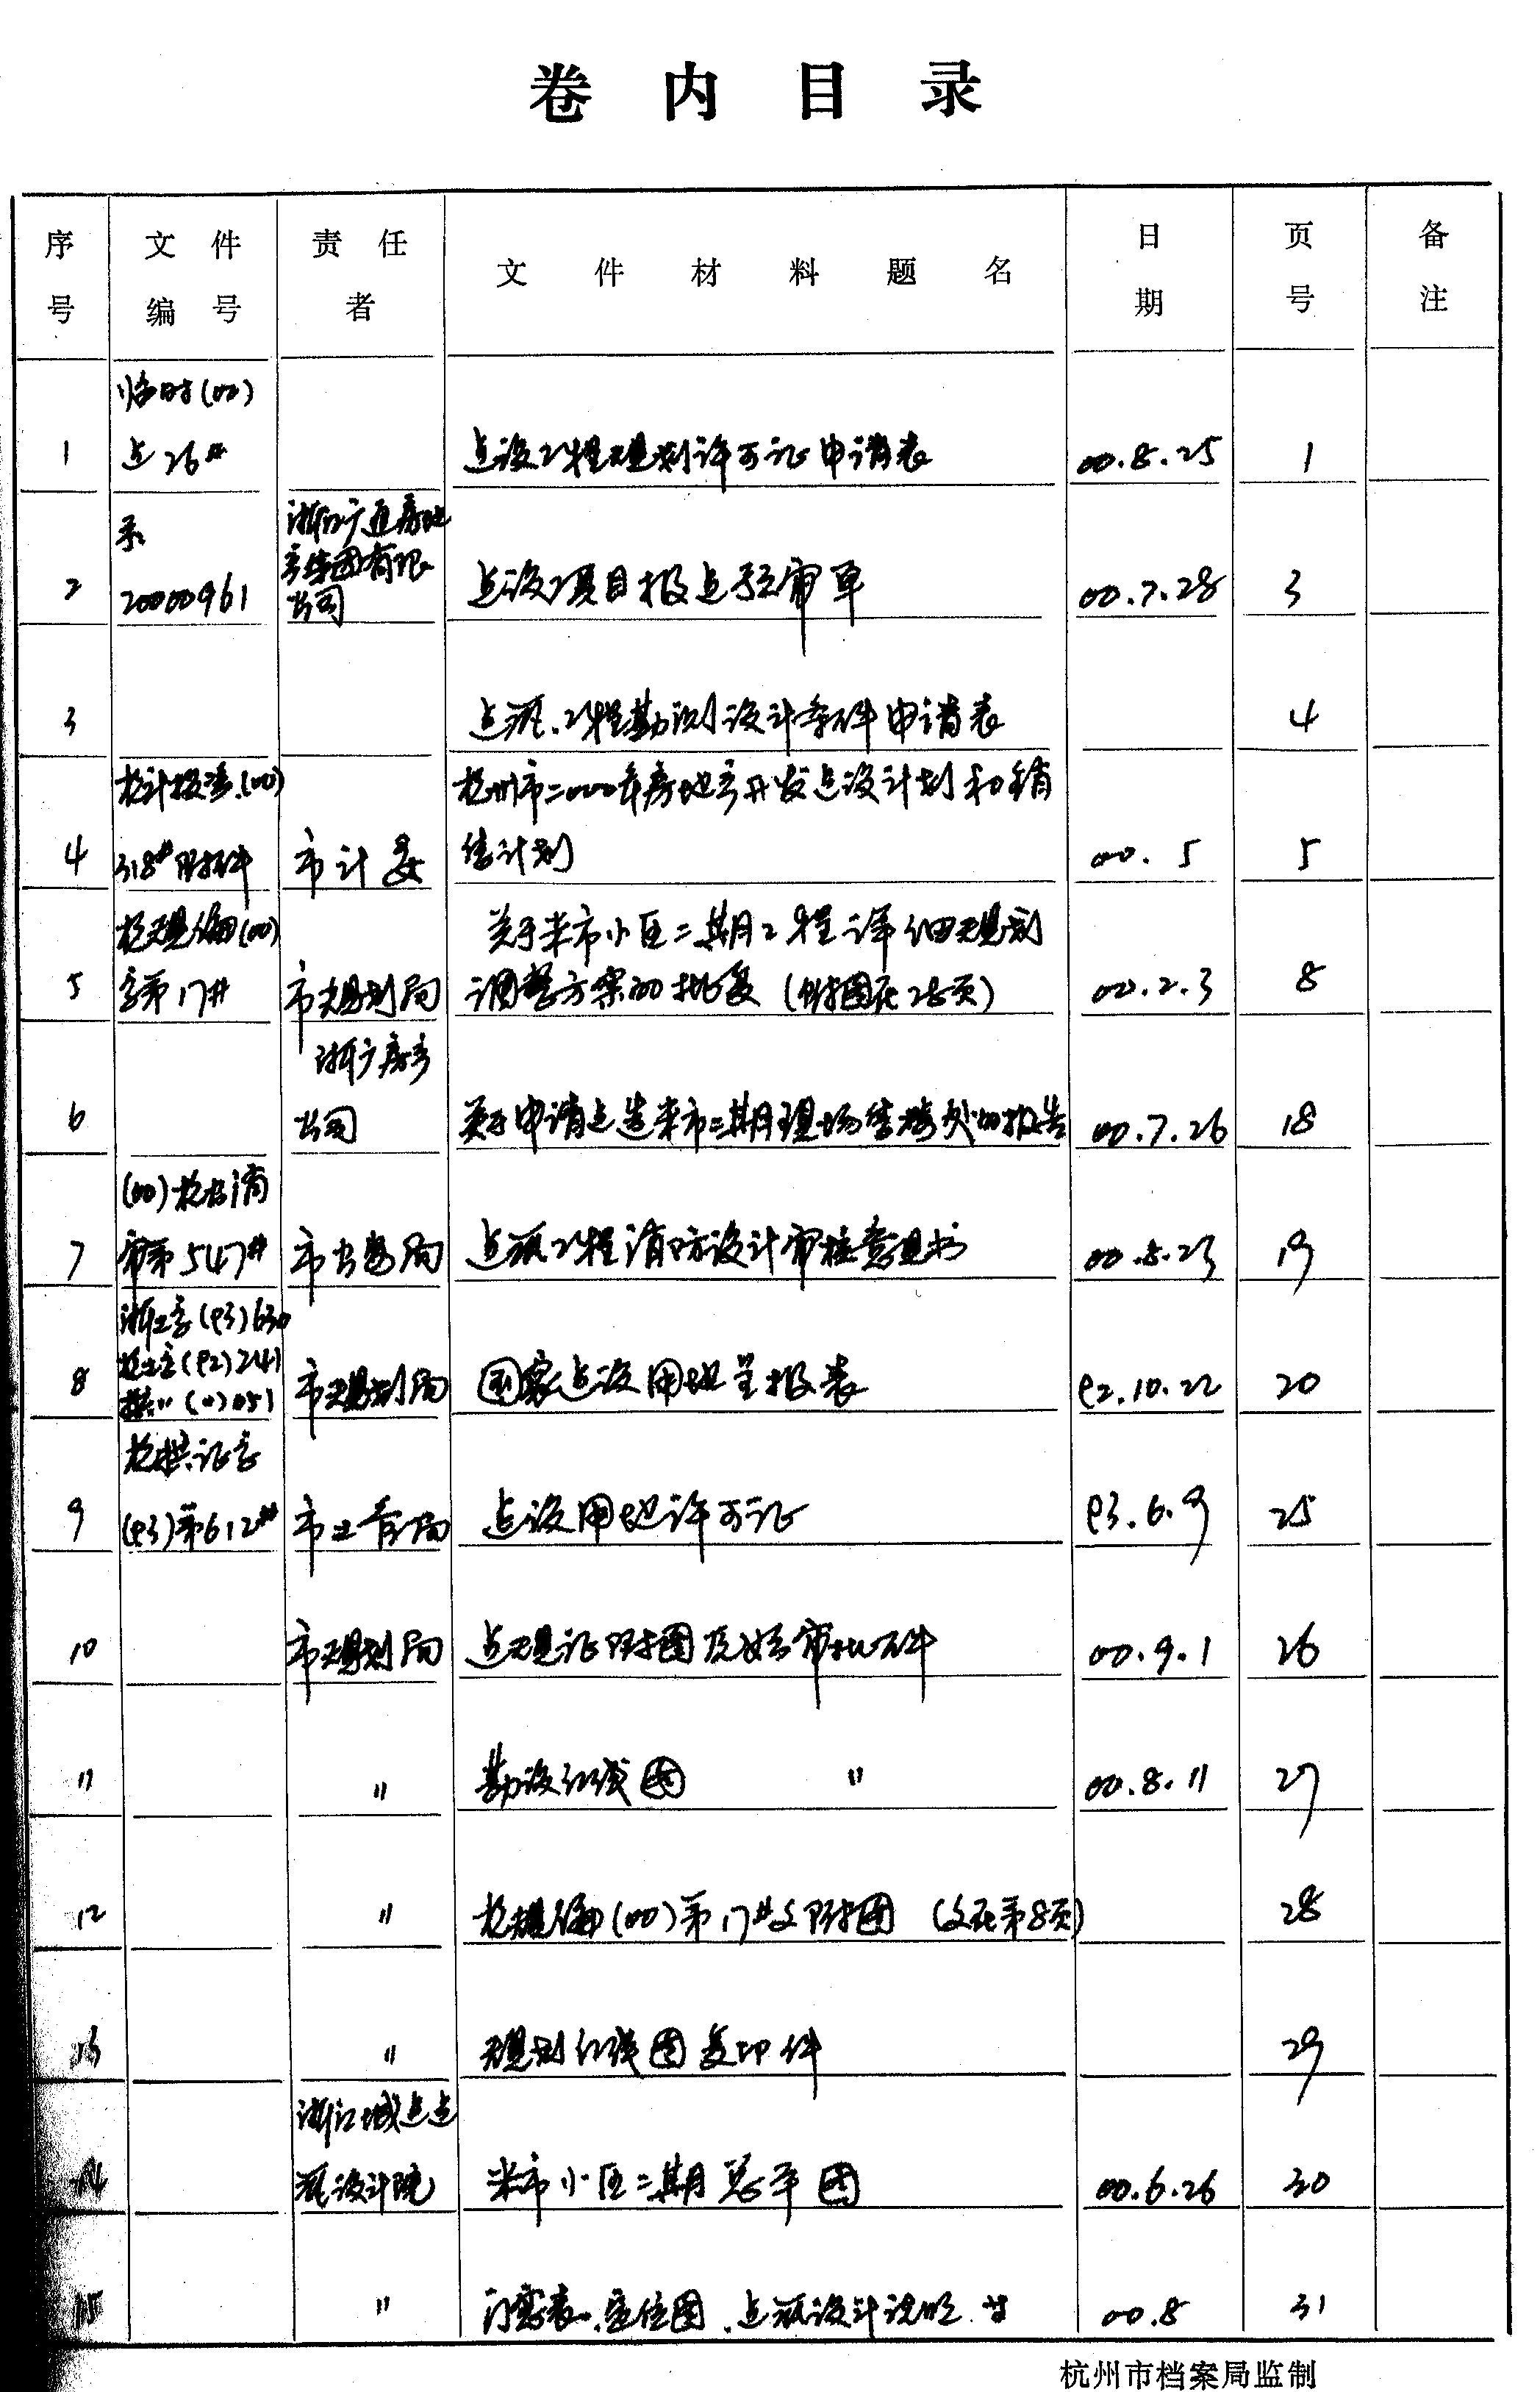 卷内目录
序号 文件编号 责任者 文件材料题名 日期 页号 备注
临时(00)
1 建26# 建设工程规划许可证申请表 00.8.25 1
浙江广厦房地
20000961 产集团有限
2 公司 建设项目报建预审单 00.7.28 3
3 建筑工程勘测设计条件申请表 4
杭计投资(00) 杭州市二000年房地产开发建设计划和销
4 318#附件 市计委 售计划 00.5 5
杭规编(00) 关于米市小区二期工程详细规划
5 字第17# 市规划局 调整方案的批复(附图在28页) 00.2.3 8
浙广房产
6 公司 关于申请建造米市二期现场售楼处的报告 00.7.26 18
(00)杭公消
7 审第547# 市公安局 建筑工程消防设计审核意见书 00.8.23 19
浙土字(93)630
杭土字(92)241
8 市规划局 国家建设用地呈报表 92.10.22 20
9 (93)第612# 市土管局 建设用地许可证 93.6.9 25
10 市规划局 建规证附图及 审批文件 00.9.1 26
11 〃 勘设红线图 〃 00.8.11 27
12 〃 杭规编(00)第17#文附图 (文在第8页) 28
13 〃 规划红线图复印件 29
浙江城建建
14 筑设计院 米市小区二期总平图 00.6.26 30
15 〃 门窗表、定位图、建筑设计说明 等 00.8 31
杭州市档案局监制